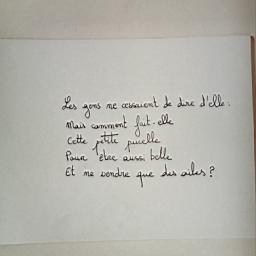 Les gens ne cessaient de dire d'elle :
Mais comment fait-elle
Cette petite pucelle
Pour être aussi belle
Et ne vendre que des ailes ?